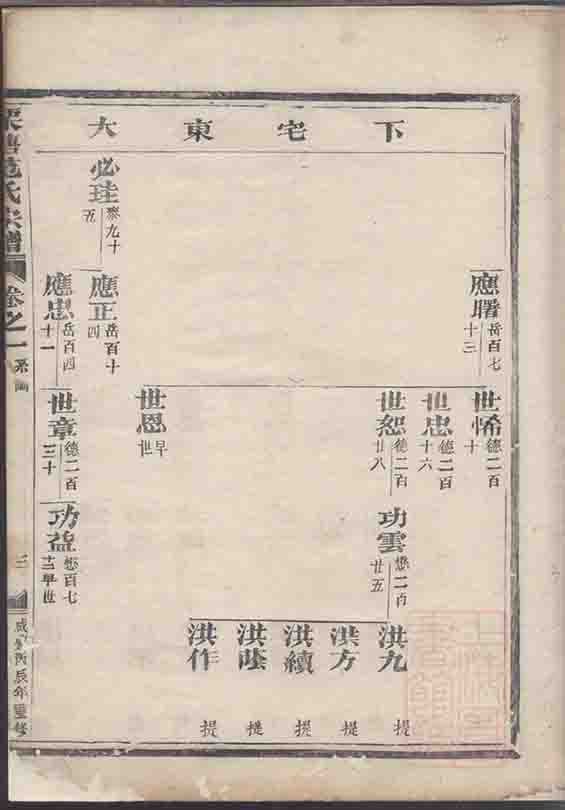 下宅東大
應曙
岳百七
十三
世悕
德二百
十
世忠
德二百
十六
世恕
德二百
廿八
功雲
懋二百
廿五
洪九
提
洪方
提
洪續
提
洪蔭
提
洪作
提
世恩
早
世
必珪
泰九十
五
應正
岳百十
四
應忠
岳百四
十一
世章
德二百
三十
功益
懋百七
十二早世
氏宗譜
卷之一
系圖
三
咸豐丙辰年重修